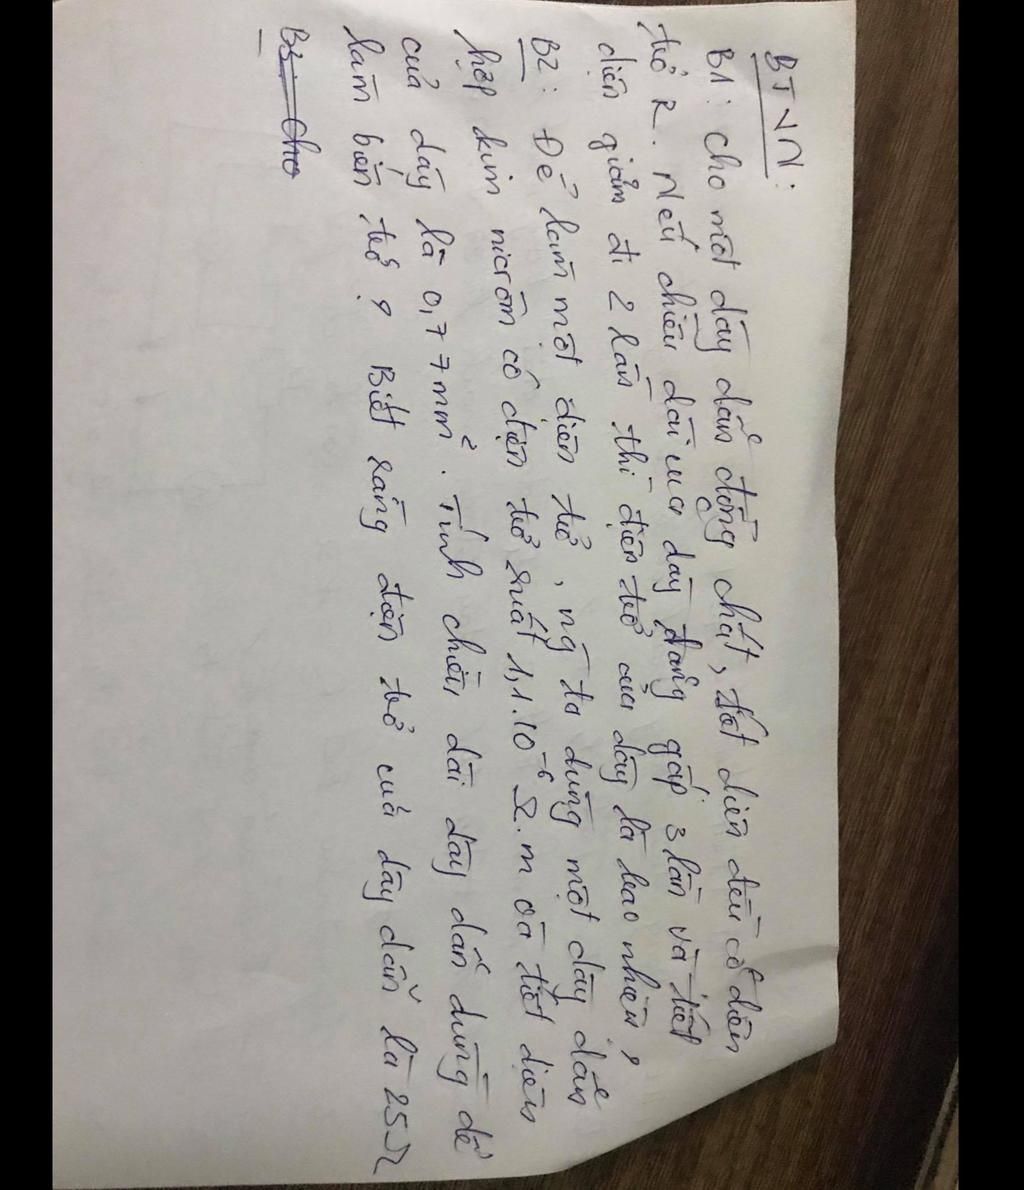 BTVN:
B1: Cho một dây dẫn đồng chất, tiết diện đều có điện
trở R. Nếu chiều dài của dây tăng gấp 3 lần và tiết
diện giảm đi 2 lần thì điện trở của dây là bao nhiêu?
B2: Để làm một điện trở, ng ta dùng một dây dẫn
hợp kim nicrôm có điện trở suất 1,1.10⁻⁶ Ω.m và tiết diện
của dây là 0,77mm². Tính chiều dài dây dẫn dùng để
làm biến trở? Biết rằng điện trở của dây dẫn là 25Ω
B3: Cho